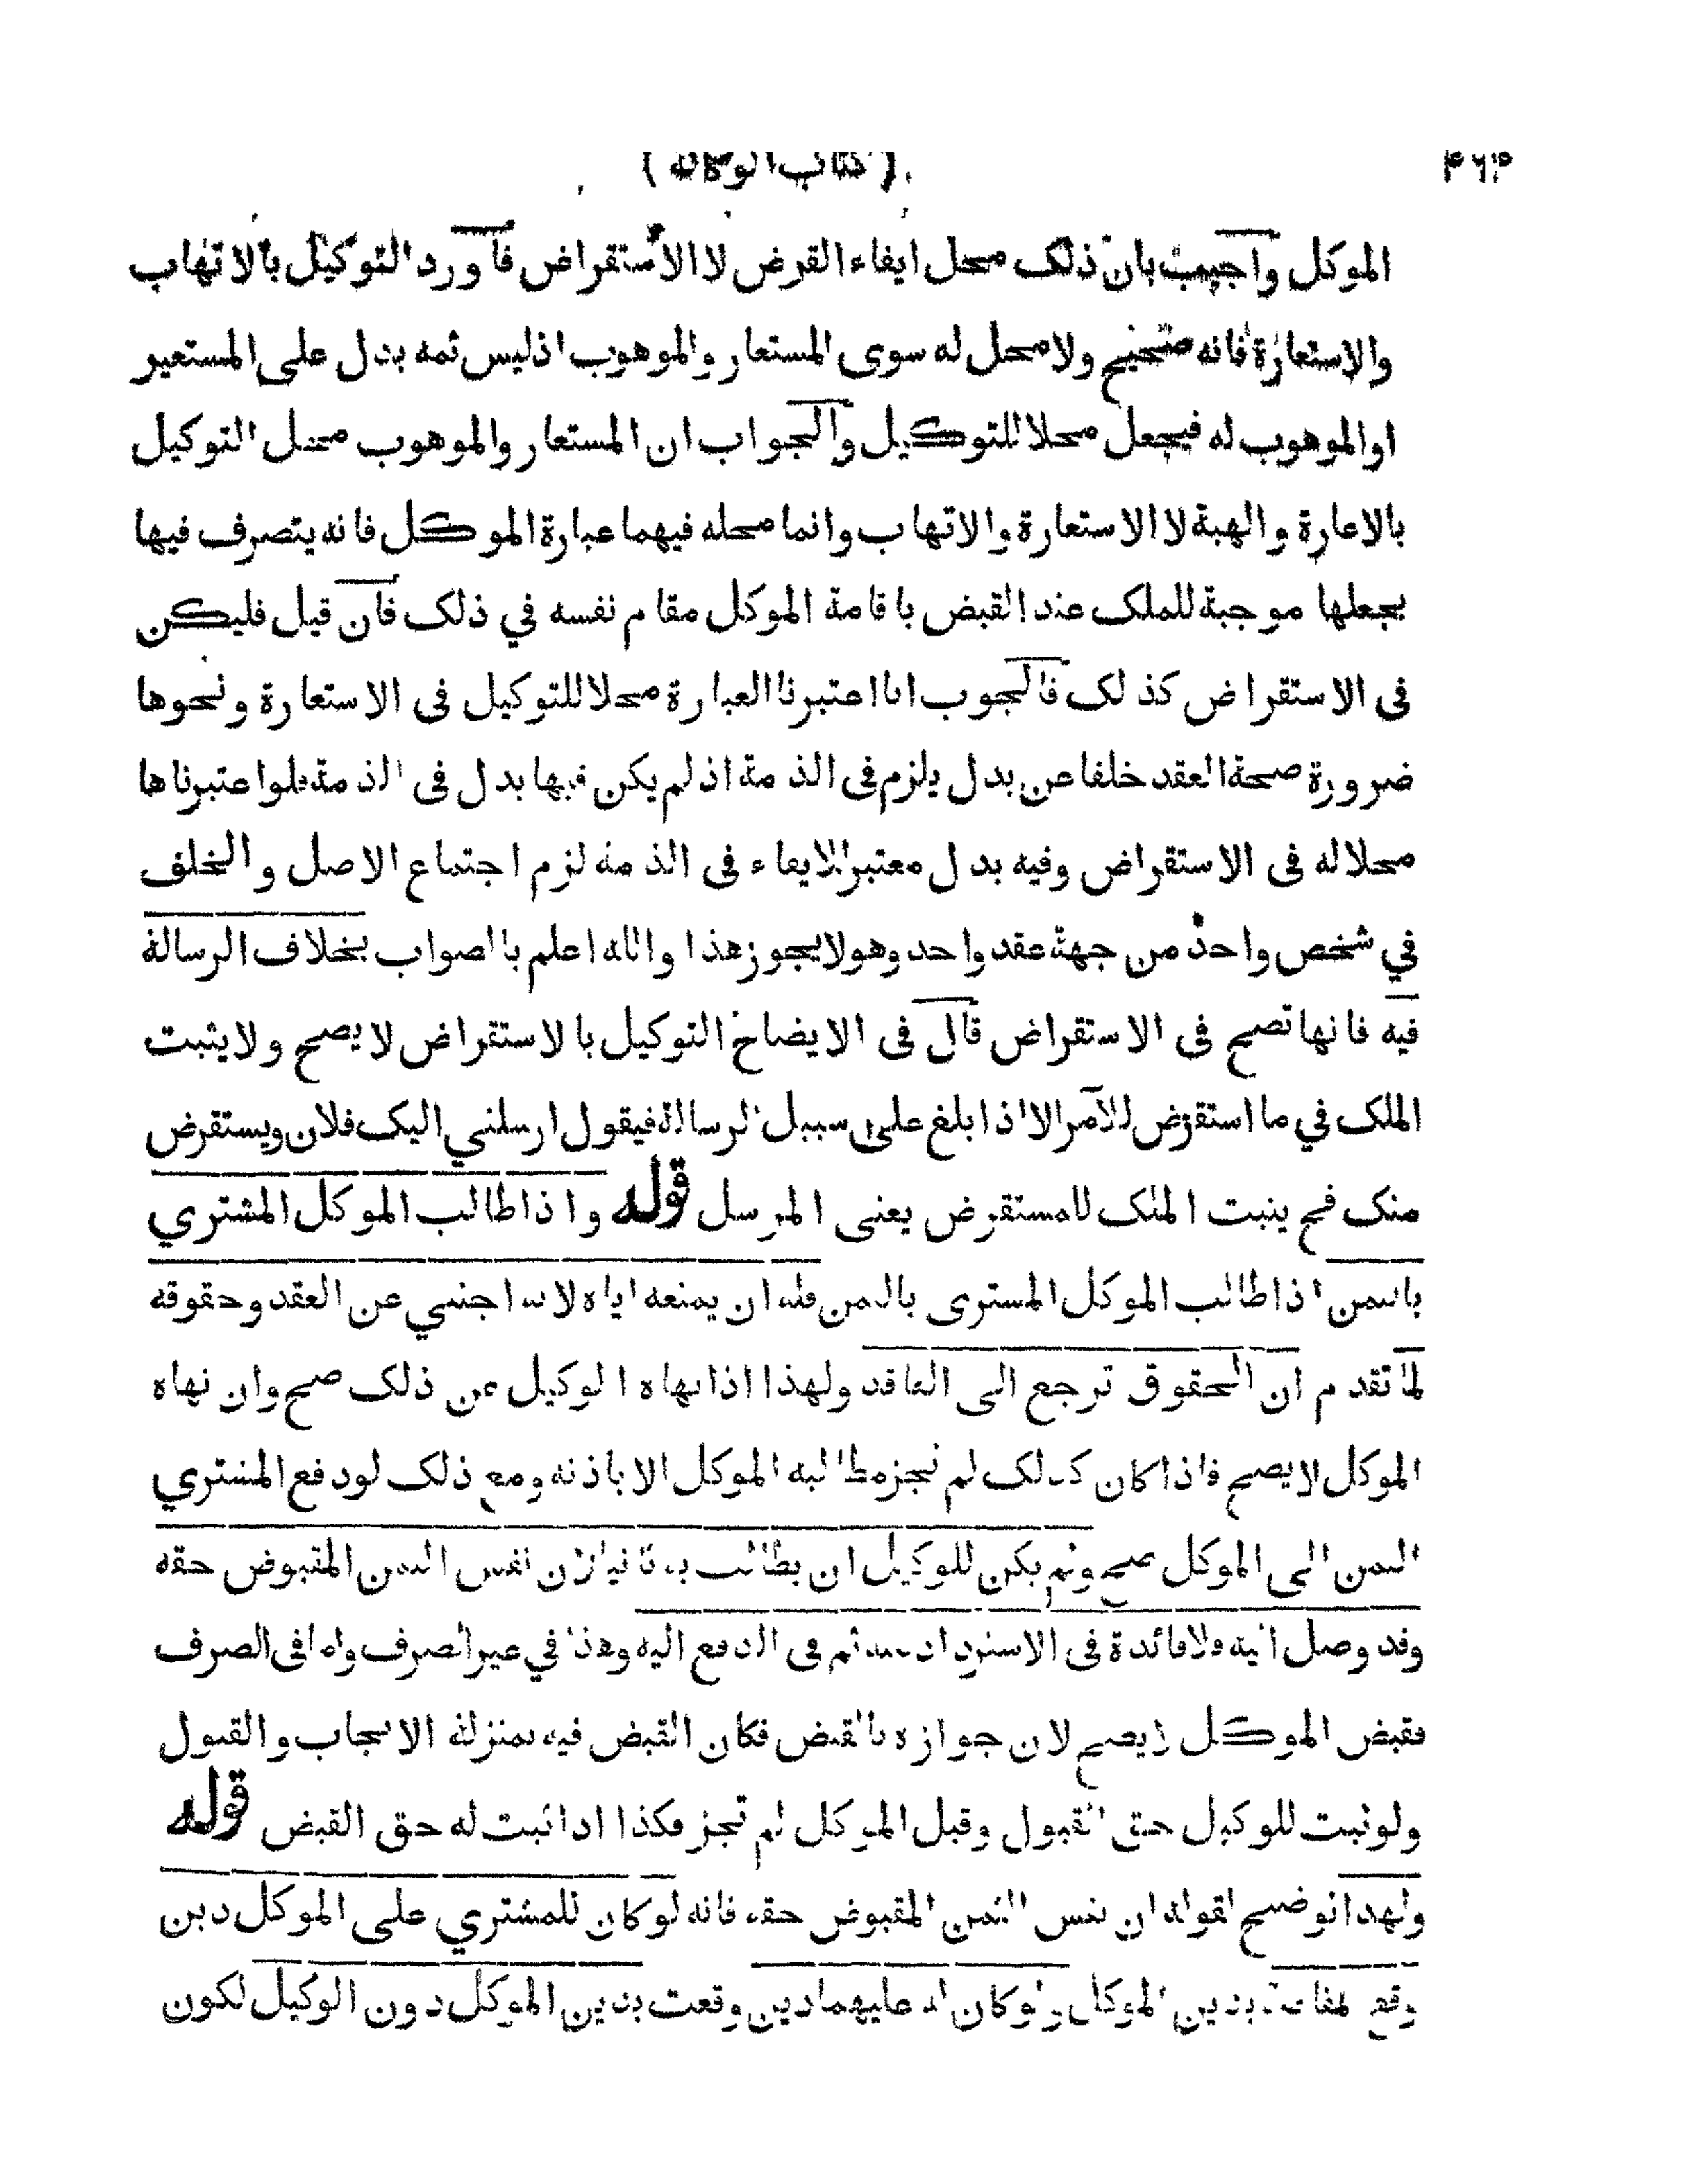 (كتاب الوكالة) ۴۶۴
الموكل واجيب بان ذلك محل ايفاء القرض لا الاستقراض فاورد التوكيل بالاتهاب
والاستعارة فانه صحيح ولا محل له سوى المستعار والموهوب اذ ليس ثمه بدل على المستعير
او الموهوب له فيجعل محلا للتوكيل والجواب ان المستعار والموهوب محل التوكيل
بالاعارة والهبة لا الاستعارة والاتهاب وانما محله فيهما عبارة الموكل فانه يتصرف فيها
بجعلها موجبة للملك عند القبض باقامة الموكل مقام نفسه في ذلك فان قيل فليكن
فى الاستقراض كذلك فالجوب انا اعتبرنا العبارة محلا للتوكيل فى الاستعارة ونحوها
ضرورة صحة العقد خلفا عن بدل يلزم فى الذمة اذ لم يكن فيها بدل فى الذمة فلو اعتبرناها
محلا له فى الاستقراض وفيه بدل معتبر للايفاء فى الذمة لزم اجتماع الاصل والخلف
في شخص واحد من جهة عقد واحد وهو لا يجوز هذا والله اعلم بالصواب بخلاف الرسالة
فيه فانها تصح فى الاستقراض قال فى الايضاح التوكيل بالاستقراض لا يصح ولا يثبت
الملك في ما استقرض للآمر الا اذا بلغ على سبيل الرسالة فيقول ارسلني اليك فلان ويستقرض
منك فح يثبت الملك للمستقرض يعنى المرسل قوله واذا طالب الموكل المشتري
بالثمن اذا طالب الموكل المشترى بالثمن فله ان يمنعه اياه لانه اجنبي عن العقد وحقوقه
لما تقدم ان الحقوق ترجع الى العاقد ولهذا اذا نهاه الوكيل عن ذلك صح وان نهاه
الموكل لا يصح فاذا كان كذلك لم تجز مطالبه الموكل الا باذنه ومع ذلك لو دفع المشتري
الثمن الى الموكل صح ولم يكن للوكيل ان يطالب به ثانيا لان نفس الثمن المقبوض حقه
وقد وصل اليه ولا فائدة فى الاسترداد منه ثم فى الدفع اليه وهذا في غير الصرف واما فى الصرف
فقبض الموكل لا يصح لان جوازه بالقبض فكان القبض فيه بمنزلة الايجاب والقبول
ولو ثبت للوكيل حق القبول وقبل الموكل لم تجز فكذا اذا ثبت له حق القبض قوله
ولهذا توضيح لقوله ان نفس الثمن المقبوض حقه فانه لو كان للمشتري على الموكل دين
وقع المقاصة بدين الموكل ولو كان له عليهما دين وقعت بدين الموكل دون الوكيل لكون